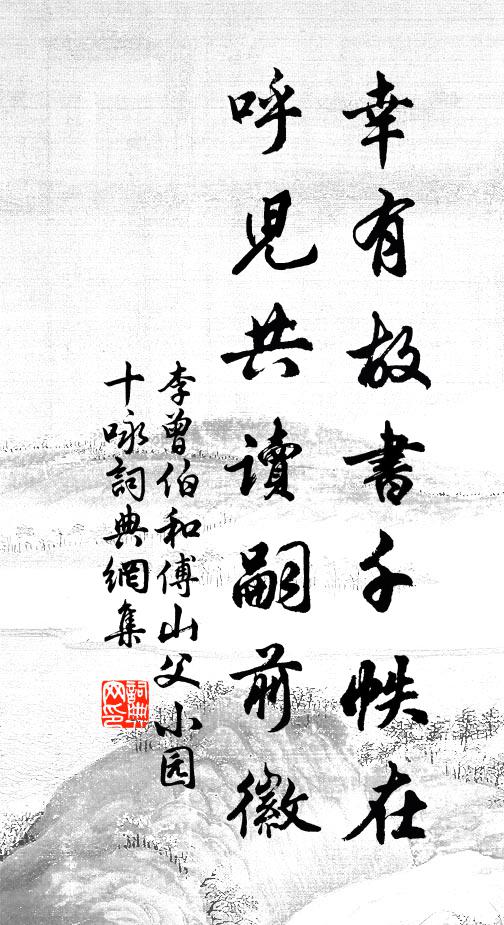 幸有故書千帙在
呼兒共讀嗣前徽
李曾伯和傅山父小园
十咏詞典網集
詞典
网印